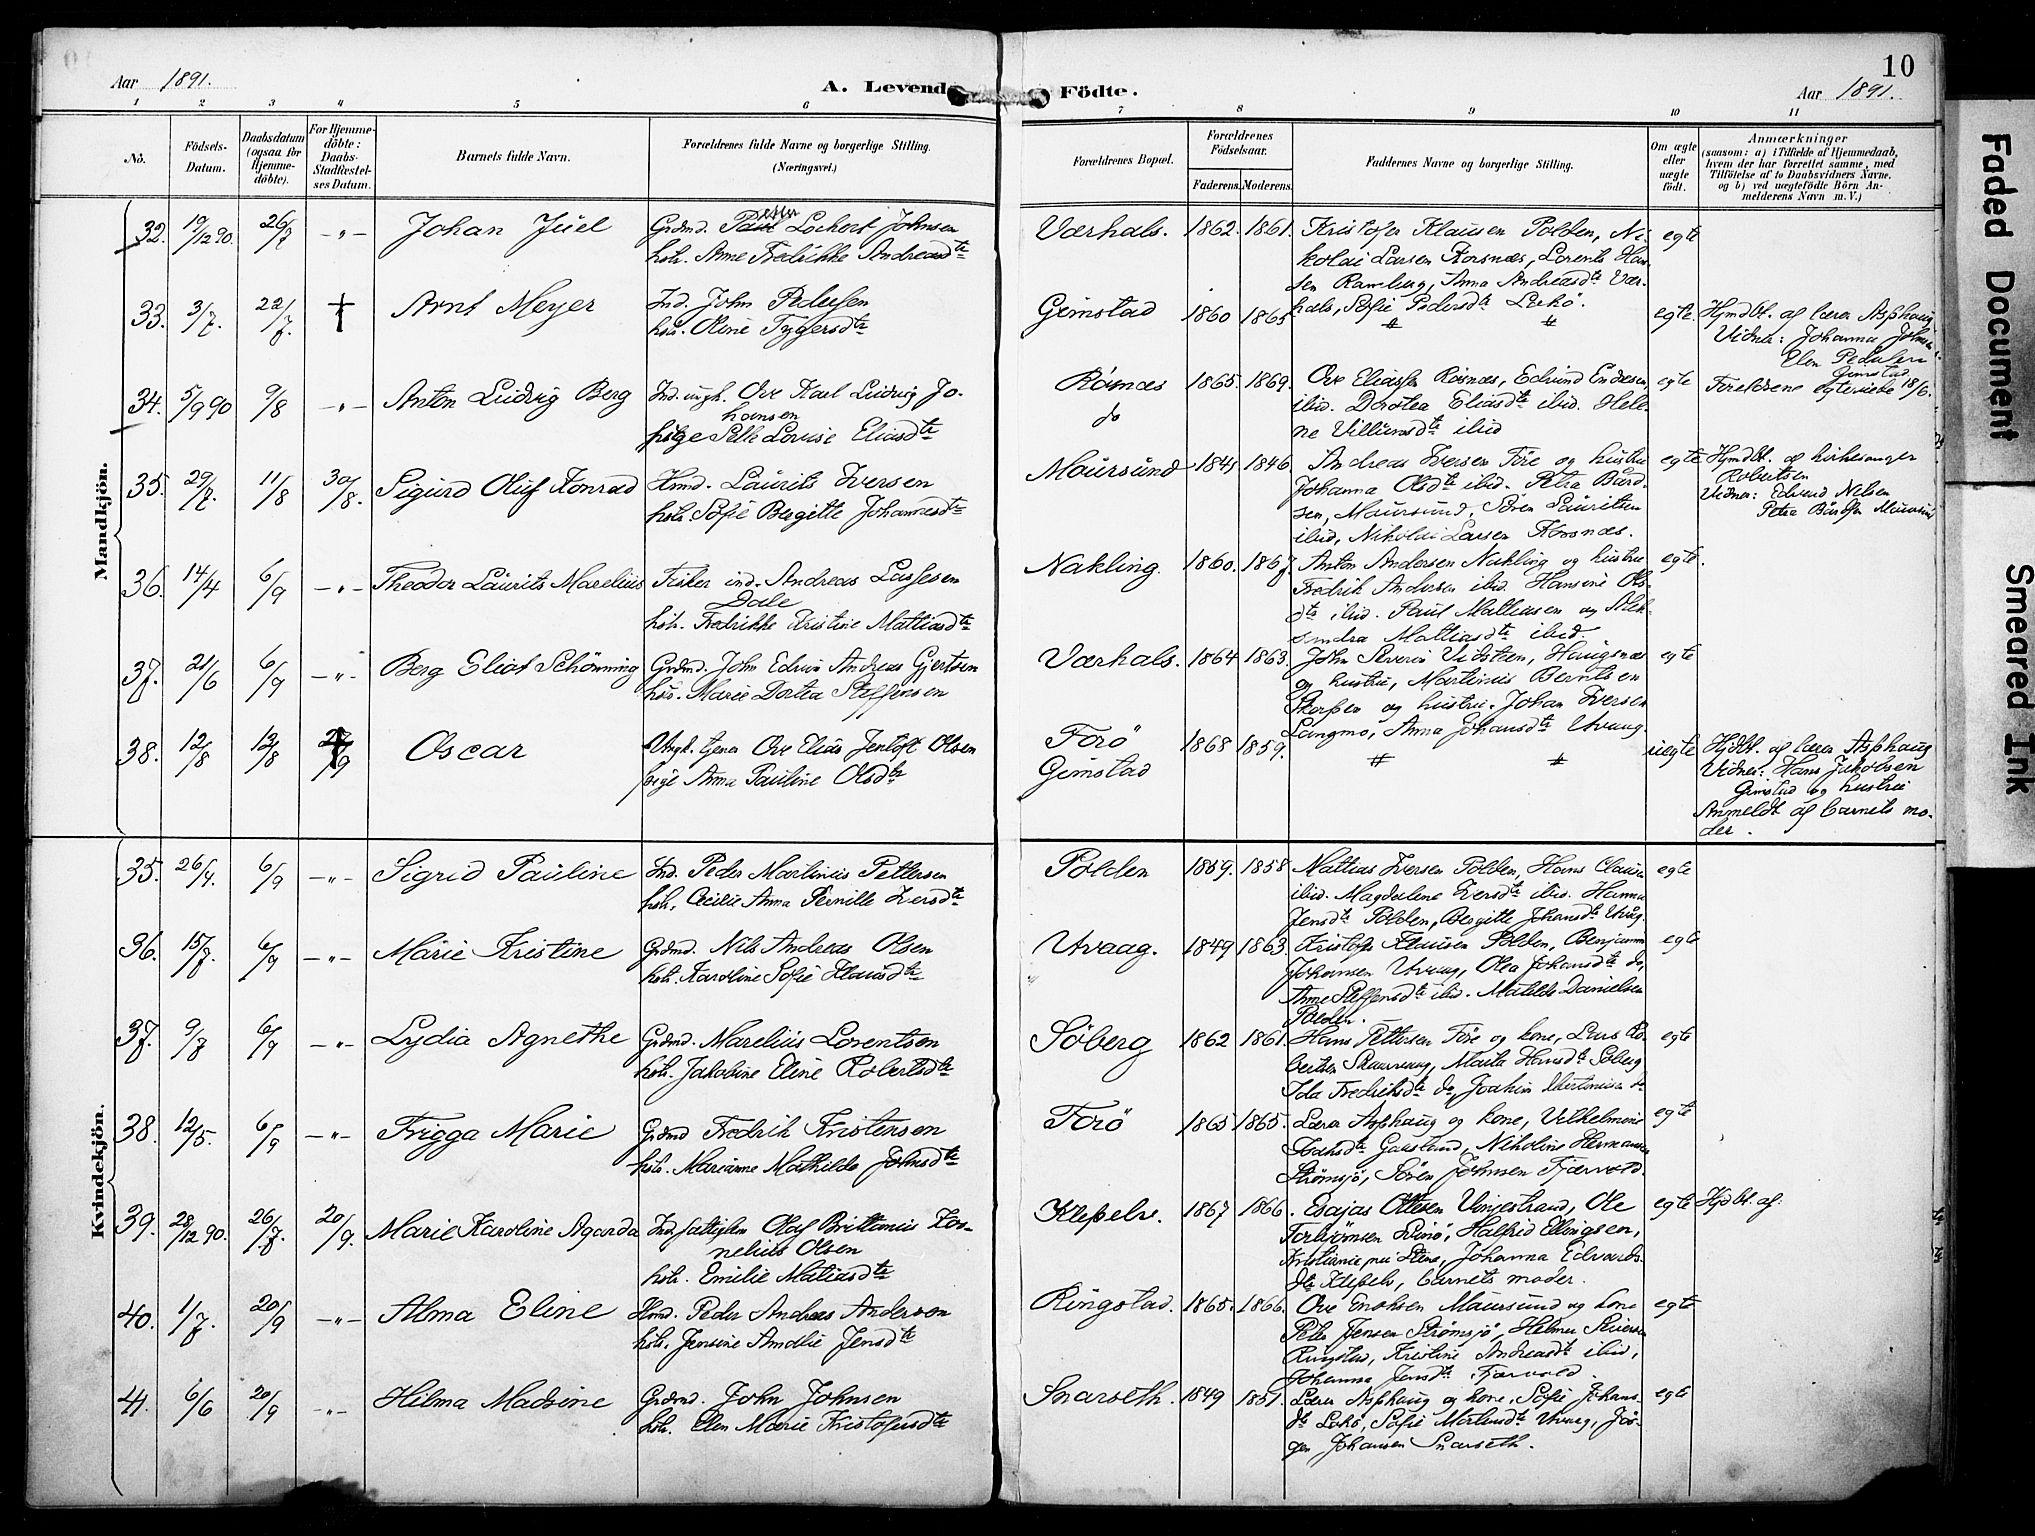 10
Aar 1891.
A. Levend Födte.
Aar 1891.
1 2 3 4 5 6 7 8 9 10 11
No.
Födsels-Datum.
Daabsdatum (ogsaa for Hjemme-döbte).
For Hjemme-döbte: Daabs-Stadfæstel-ses Datum.
Barnets fulde Navn.
Forældrenes fulde Navne og borgerlige Stilling.
(Næringsvei.)
Forældrenes Bopæl.
Forældrenes Födselsaar.
Faderens. Moderens.
Faddernes Navne og borgerlige Stilling.
Om ægte eller uægte födt.
Anmærkninger
(saasom: a) i Tilfælde af Hjemmedaab,
hvem der har forrettet samme, med
Tilföielse af to Daabsvidners Navne.
og b) ved uægtefödte Börn An-
melderens Navn m. V.)
Mandkjön.
32. 19/12 90. 26/7 -"- Johan Juel
Grdmd. Petter Lockert Johnsen
hstr. Anne Fredrikke Andreasdtr
Værhals. 1862. 1861. Kristofer Klausen Polden, Ni-
kolai Larsen Korsnæs, Lorents Han-
sen Ramberg, Anna Andreasdtr Vær-
hals, Sofie Pedersdtr
egte
33. 3/7. 22/7. † Arnt Meyer
Ind. John Pedersen
hstr. Oline Tygersdtr
Gimstad 1860 1865
egte. Hjmdbt. af lærer Asphaug
Vidner: Johanna
Elen Pedersen
Gimstad.
34. 5/9 90 9/8 -"- Anton Ludvig Berg
Ind. ungk. Ove Karl Ludvig Jo-
hansen
pige Pelle Lovise Eliasdtr
Rösnæs do 1865. 1869. Ove Eliassen Rösnæs, Edvind Endresen
ibid. Dorotea Eliasdtr ibid. Hele-
ne Villumsdtr ibid
egte Foreldrene egteviede 18/6.
35. 29/7. 11/8 30/8. Sigurd Oluf Konrad
Hmd. Laurits Iversen
hstr. Sofie Bergitte Johannesdtr
Maursund 1841 1846. Andreas Iversen Före og hustru
Johanna Olsdtr ibid. Petra Bård-
sen, Maursund, Sören Lauritsen
ibid, Nikolai Larsen Korsnæs.
egte Hjmdbt. af kirkesanger
Robertsen
Vidner: Edvard Nilsen
Petra Bårdsen Maursund
36. 14/4 6/9 -"- Theodor Laurits Marelius
Fisker ind. Andreas Lassesen
Dale
hstr. Fredrikke Kristine Mattiasdtr
Nakling. 1860. 1867. Anton Andersen Nakling og hustru
Fredrik Andersen ibid. Hansine Ols-
dtr ibid. Paul Mattiasen og Alek-
sandra Mattiasdtr ibid.
egte.
37. 21/6 6/9 -"- Berg Eliot Schönning
Grdmd. John Edvin Andreas Gjertsen
hstr. Marie Dortea Steffensen
Værhals. 1864 1863. John Severin Vidsteen, Haugsnæs
og hustru, Martinus Berntsen
Skorpen og hustru. Johan Iversen
Langmo, Anna Johansdtr Utvaag.
egte
38. 12/8 13/8 † Oscar
Ungk. tjener Ove Elias Jentoft Olsen
pige Anna Pauline Olsdtr
Forö
Gimstad 1868 1859.
uegte Hjdbt. af lærer Asphaug
Vidner: Hans Jakobsen
Gimstad og hustru
Anmeldt af barnets mo-
der.
Kvindekjön.
35. 26/4. 6/9 -"- Sigrid Pauline
Ind. Peder Martinus Pettersen
hstr. Cecilie Anna Pernille Iversdtr
Polden 1859. 1858 Mattias Iversen Polden, Hans Clausen
ibid. Magdalene Iversdtr ibid. Hanna
Jensdtr Polden, Bergitte Johansdtr Utvåg.
egte
36. 15/8. 6/9 -"- Marie Kristine
Grdmd. Nils Andreas Olsen
hstr. Karoline Sofie Klausdtr
Utvaag. 1849 1863. Kristofer Klausen Polden, Benjamin
Johansen Utvaag, Olea Johansdtr do,
Anne Steffensdtr ibid. Matilde Danielsen
Polden.
egte
37. 9/8 6/9 -"- Lydia Agnethe
Grdmd. Marelius Lorentsen
hstr. Jakobine Eline Robertsdtr
Söberg 1862 1861. Hans Pettersen Före og kone, Lars Ro-
bertsen Skaarvaag, Marta Hansdtr Söberg
Ida Fredriksdtr do, Joakim Martinusen do
egte
38. 12/5. 6/9 -"- Frigga Marie
Grdmd Fredrik Kristensen
hstr. Marianne Mathilde Johnsdtr
Forö 1865 1865. Lærer Asphaug og kone, Vilhelmine
Gaustad, Nikoline Hermansen
Strömsjö, Sören Johnsen Fjærvold.
egte
39. 28/12 90. 26/7. 20/9. Marie Karoline Agarda
Olaf Brittanius Kor-
nelius Olsen
hstr. Emilie Matiasdtr
Klepelv. 1867 1866. Esajas Ottesen Vinjestrand, Ole
Torbjörnsen Rinö, Halfrid Ellingsen,
Johanna Edvards-
dtr Klepelv, barnets moder.
egte Hjdbt. af:
40. 1/7. 20/9 -"- Alma Eline
Hmd. Peder Andreas Andersen
hstr. Jensine Amalie Jensdtr
Ringstad. 1865. 1866. Ove Enoksen Maursund og kone
Peter Jensen Strömsjö, Helmer Siversen
Ringstad, Kristine Andreasdtr ibid,
Johanna Jensdtr Fjærvold.
egte
41. 6/6 20/9 -"- Hilma Madsine
Grdmd. John Johnsen
hstr. Elen Marie Kristofersdtr
Snarseth. 1849 1851. Lærer Asphaug og kone, Sofie Johans-
dtr, Sofie Mortensdtr Utvaag, Jör-
gen Johansen Snarseth.
egte
Faded Document
Smeared Ink